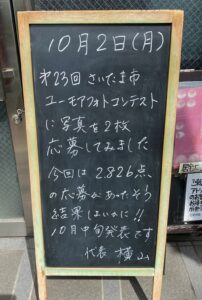 10月2日(月)
第23回 さいたま市
ユーモアフォトコンテスト
に写真を2枚
応募してみました
今回は2826点
の応募があったそう
結果はいかに!!
10月中旬発表です
代表 横山